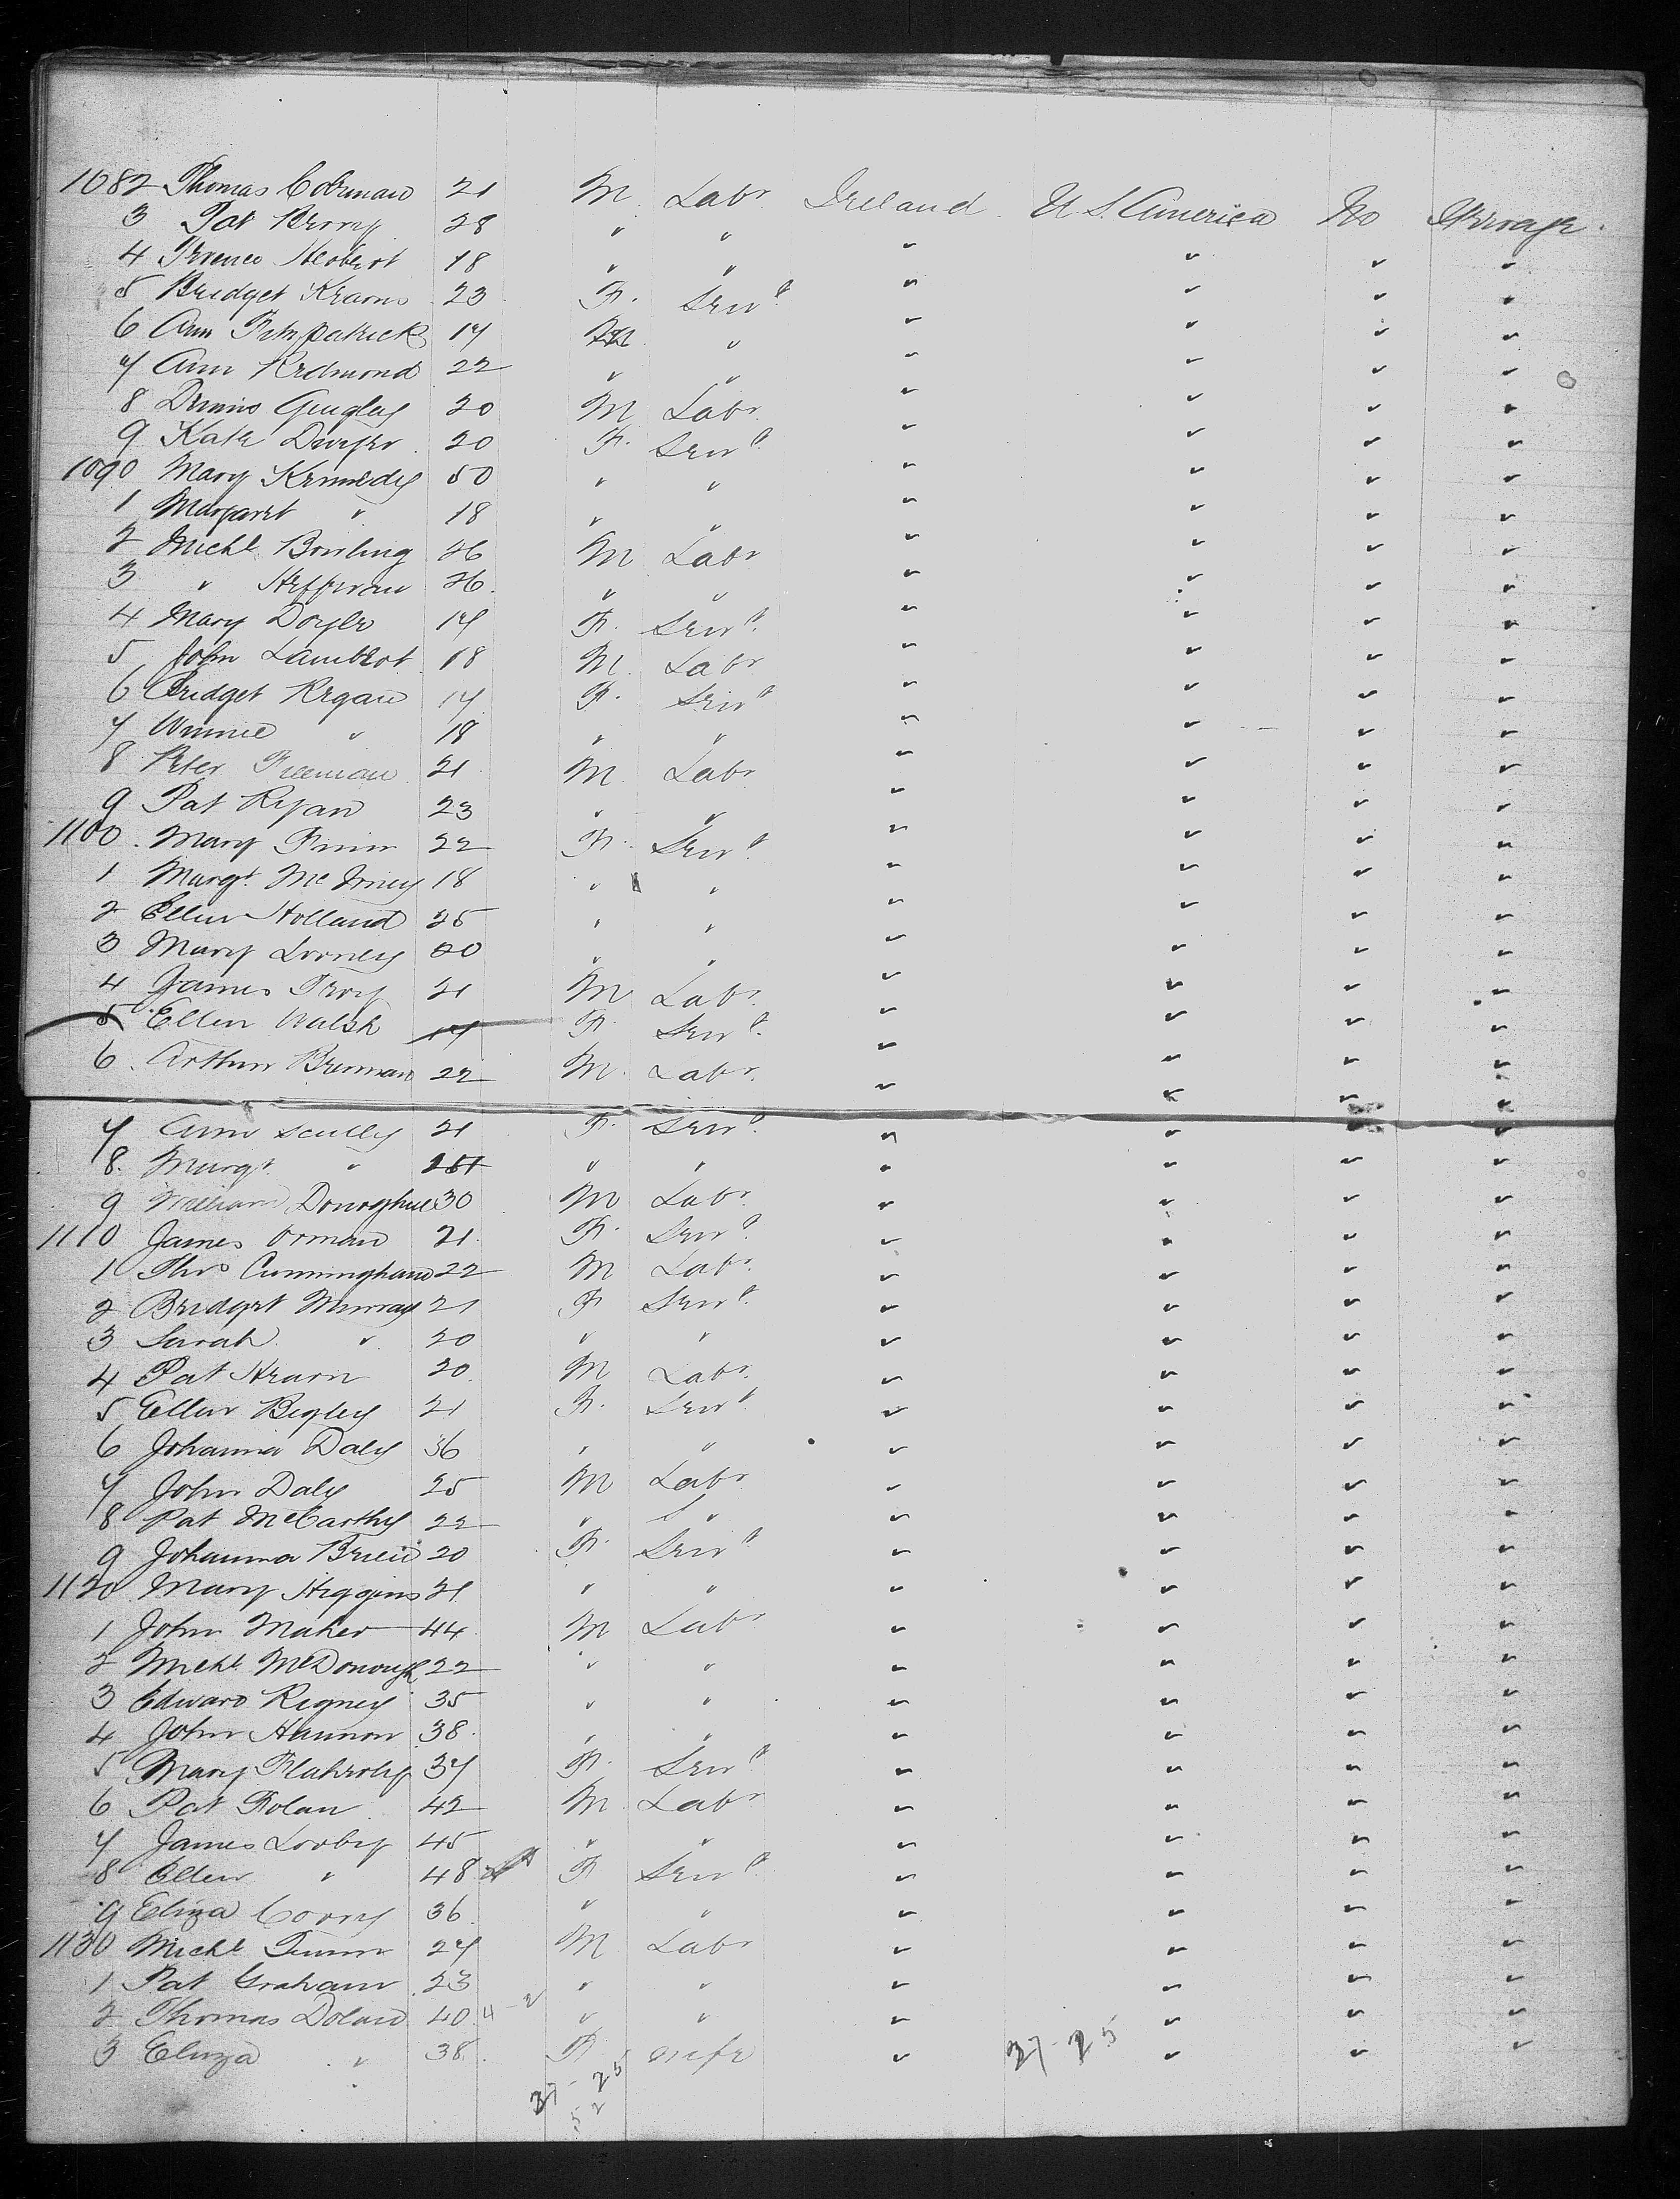 1082 Thomas Colman 21 M. Labr Ireland. U.S. America No Steerage.
3 Pat 28 " " " " " "
4 Herbert 18 " " " " " "
5 Bridget 23 F. Servt " " " "
6 Ann Fitzpatrick 17 " " " " "
7 Ann Redmond 22 " " " " " "
8 Dennis Quigley 20 M Labr " " " "
9 Kate Dwyer 20 F. Servt " " " "
1090 Mary Kennedy 50 " " " " " "
1 Margaret " 18 " " " " " "
2 Michl Bowling 26 M Labr " " " "
3 " Heffernan 26 " " " " " "
4 Mary Doyle 17 F. Servt " " " "
5 John Lambert 18 M. Labr " " " "
6 Bridget Regan 17 F. Servt " " " "
7 Winnie " 18 " " " " " "
8 Peter Freeman 21 M Labr " " " "
9 Pat Ryan 23 " " " " " "
1100 Mary Finn 22 F. Servt " " " "
1 Margt. 18 " " " " " "
2 Ellen Holland 25 " " " " " "
3 Mary Looney " " " " " "
4 James Troy 21 M Labr " " " "
5 Ellen Walsh 17 F. Servt " " " "
6 Arthur Brennan 22 M. Labr. " " " "
7 Ann Scully 21 F. Servt " " " "
8. Margt. " " " " " " "
9 William Donoghue 30 M Labr " " " "
1110 James Orman 21 F. Servt " " " "
1 Thos Cunningham 22 M Labr " " " "
2 Bridget Murray 21 F Servt " " " "
3 Sarah " 20 " " " " " "
4 Pat Hearn 20 M Labr. " " " "
5 Ellen Begley 21 F. Servt " " " "
6 Johanna Daly 36 " " " " " "
7 John Daly 25 M Labr " " " "
8 Pat McCarthy 22 " " " " " "
9 Johanna Brien 20 F. Servt " " " "
1120 Mary Higgins 21 " " " " " "
1 John Maher 44 M Labr " " " "
2 Michl McDonough 22 " " " " " "
3 Edward Rigney 35 " " " " " "
4 John Hannon 38 " " " " " "
5 Mary Flaherty 37 F. Servt " " " "
6 Pat Folan 42 M Labr " " " "
7 James Looby 45 " " " " " "
8 Ellen " 48 F Servt " " " "
9 Eliza Corry 36 " " " " " "
1130 Michl 27 M Labr " " " "
1 Pat Graham 23 " " " " " "
2 Thomas Dolan 40 " " " " " "
3 Eliza " 38 F wife " " " "
37-25
37-25
52